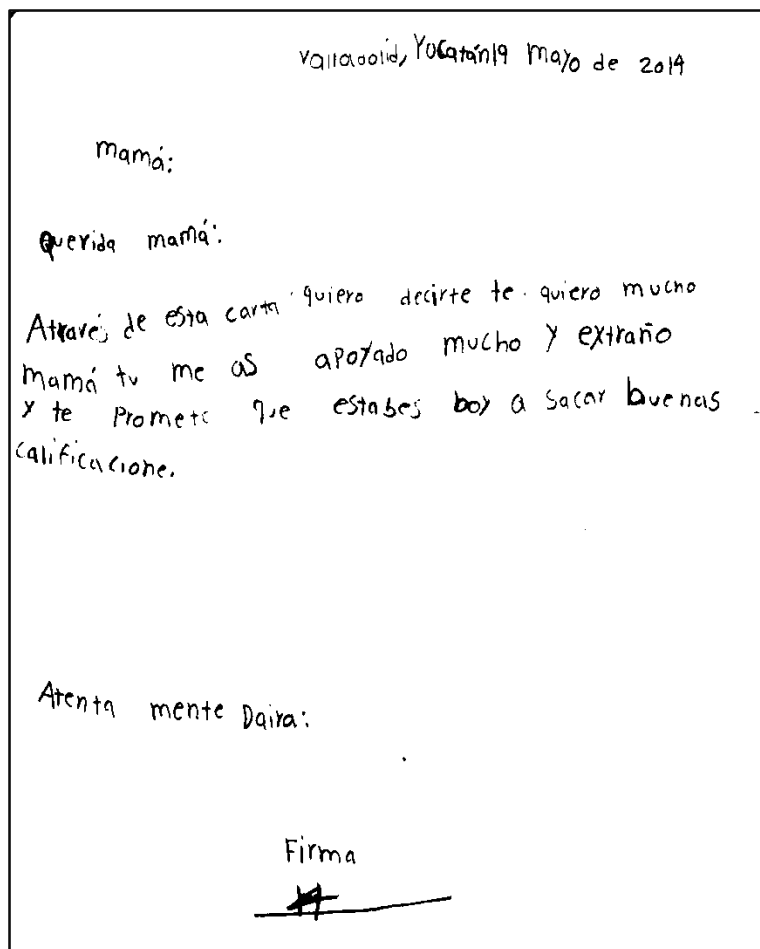 Valladolid, Yucatán 19 mayo de 2014
mamá:
Querida mamá:
Através de esta carta quiero decirte te quiero mucho
mamá tu me as apoyado mucho y extraño
y te Prometo que estabes boy a sacar buenas
calificacione.
Atenta mente Daira:
Firma